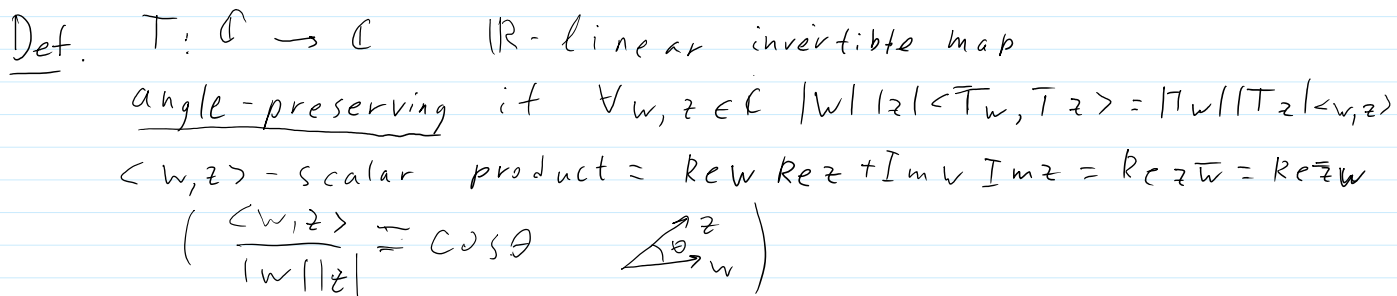 Def. T: ℂ → ℂ ℝ-linear invertible map
angle-preserving if ∀ w, z ∈ ℂ |w| |z| <Tw, Tz> = |Tw| |Tz| <w, z>
<w, z> - scalar product = Re w Re z + Im w Im z = Re z w̅ = Re z̅ w
( <w, z> / |w| |z| = cos θ z θ w )